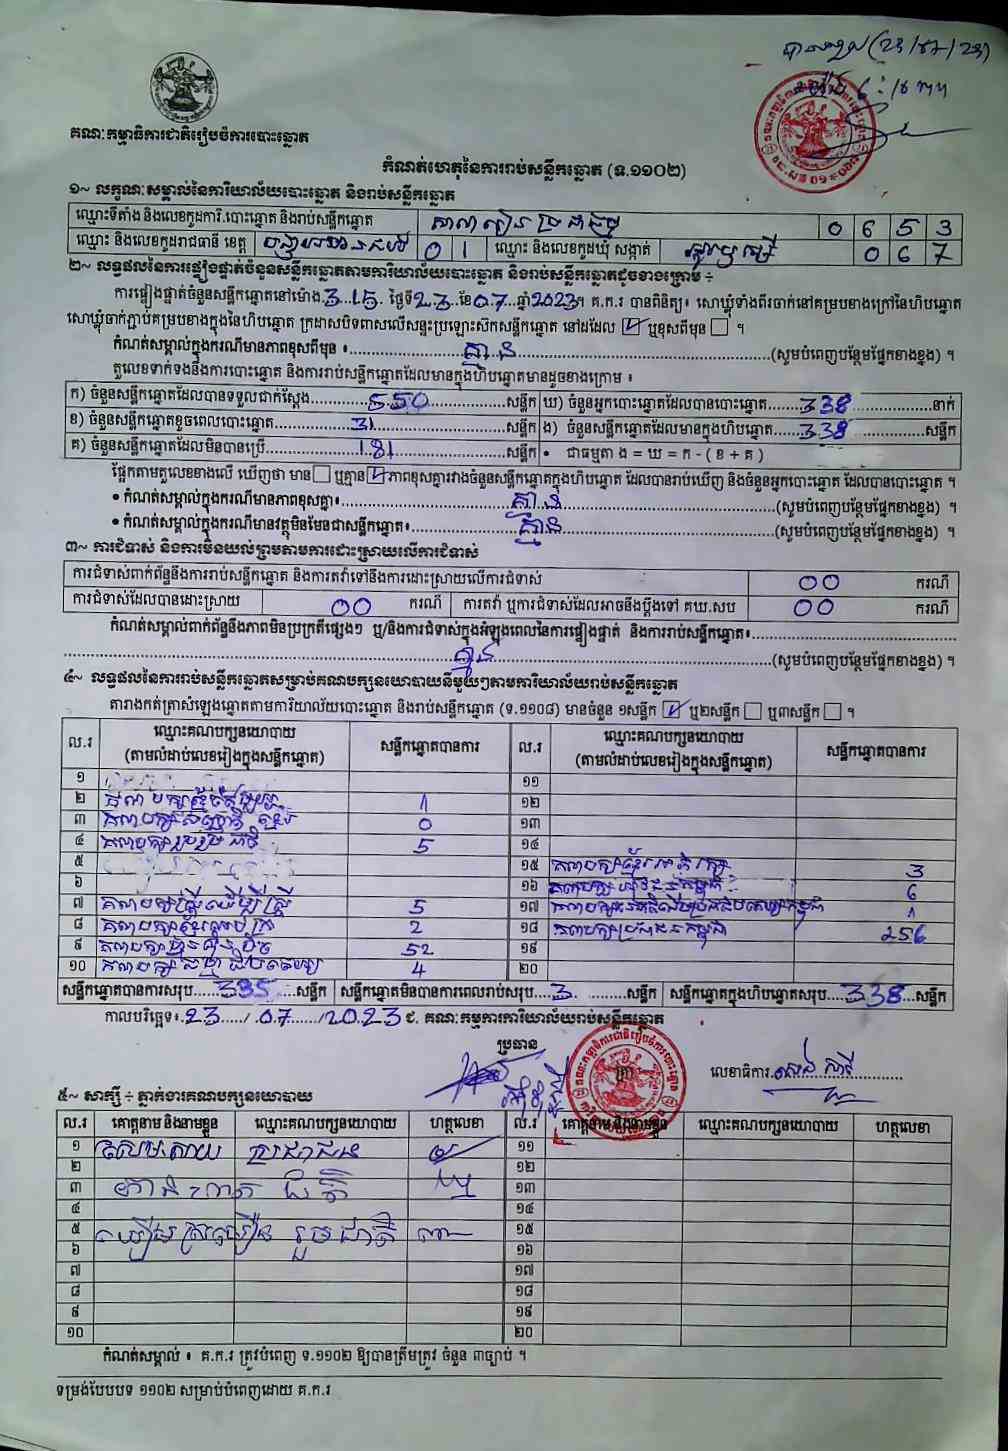 (23/07/23)
គណៈកម្មាធិការជាតិរៀបចំការបោះឆ្នោត
កំណត់ហេតុនៃការរាប់សន្លឹកឆ្នោត (ទ.១១០២)
១~ លក្ខណៈសម្គាល់នៃការិយាល័យបោះឆ្នោត និងរាប់សន្លឹកឆ្នោត
ឈ្មោះទីតាំង និងលេខកូដការិ.បោះឆ្នោត និងរាប់សន្លឹកឆ្នោត 0 6 5 3
ឈ្មោះ និងលេខកូដរាជធានី ខេត្ត បន្ទាយមានជ័យ 0 1 ឈ្មោះ និងលេខកូដឃុំ សង្កាត់ 0 6 7
២~ លទ្ធផលនៃការផ្ទៀងផ្ទាត់ចំនួនសន្លឹកឆ្នោតតាមការិយាល័យបោះឆ្នោត និងរាប់សន្លឹកឆ្នោតដូចខាងក្រោម ÷
ការផ្ទៀងផ្ទាត់ចំនួនសន្លឹកឆ្នោតនៅម៉ោង.3.15. ថ្ងៃទី23..ខែ07..ឆ្នាំ2023។ គ.ក.រ បានពិនិត្យ៖ សោឃ្លុំទាំងពីរចាក់នៅគម្របខាងក្រៅនៃហិបឆ្នោត
សោឃ្លុំចាក់ភ្ជាប់គម្របខាងក្នុងនៃហិបឆ្នោត ក្រដាសបិទពាសលើសន្ទះប្រឡោះស៊កសន្លឹកឆ្នោត នៅដដែល ☑ ឬខុសពីមុន ☐ ។
កំណត់សម្គាល់ក្នុងករណីមានភាពខុសពីមុន ៖ គ្មាន (សូមបំពេញបន្ថែមផ្នែកខាងខ្នង) ។
តួលេខទាក់ទងនឹងការបោះឆ្នោត និងការរាប់សន្លឹកឆ្នោតដែលមានក្នុងហិបឆ្នោតមានដូចខាងក្រោម ៖
ក) ចំនួនសន្លឹកឆ្នោតដែលបានទទួលជាក់ស្តែង 550 សន្លឹក ឃ) ចំនួនអ្នកបោះឆ្នោតដែលបានបោះឆ្នោត 338 នាក់
ខ) ចំនួនសន្លឹកឆ្នោតខូចពេលបោះឆ្នោត 31 សន្លឹក ង) ចំនួនសន្លឹកឆ្នោតដែលមានក្នុងហិបឆ្នោត 338 សន្លឹក
គ) ចំនួនសន្លឹកឆ្នោតដែលមិនបានប្រើ 181 សន្លឹក • ជាធម្មតា ង = ឃ = ក - ( ខ + គ )
ផ្អែកតាមតួលេខខាងលើ ឃើញថា មាន ☐ ឬគ្មាន ☑ ភាពខុសគ្នារវាងចំនួនសន្លឹកឆ្នោតក្នុងហិបឆ្នោត ដែលបានរាប់ឃើញ និងចំនួនអ្នកបោះឆ្នោត ដែលបានបោះឆ្នោត ។
• កំណត់សម្គាល់ក្នុងករណីមានភាពខុសគ្នា៖ គ្មាន (សូមបំពេញបន្ថែមផ្នែកខាងខ្នង) ។
• កំណត់សម្គាល់ក្នុងករណីមានវត្ថុមិនមែនជាសន្លឹកឆ្នោត៖ គ្មាន (សូមបំពេញបន្ថែមផ្នែកខាងខ្នង) ។
៣~ ការជំទាស់ និងការមិនយល់ព្រមតាមការដោះស្រាយលើការជំទាស់
ការជំទាស់ពាក់ព័ន្ធនឹងការរាប់សន្លឹកឆ្នោត និងការតវ៉ាទៅនឹងការដោះស្រាយលើការជំទាស់ 00 ករណី
ការជំទាស់ដែលបានដោះស្រាយ 00 ករណី ការតវ៉ា ឬការជំទាស់ដែលអាចនឹងប្តឹងទៅ គឃ.សប 00 ករណី
កំណត់សម្គាល់ពាក់ព័ន្ធនឹងភាពមិនប្រក្រតីផ្សេងៗ ឬ/និងការជំទាស់ក្នុងអំឡុងពេលនៃការផ្ទៀងផ្ទាត់ និងការរាប់សន្លឹកឆ្នោត៖
គ្មាន (សូមបំពេញបន្ថែមផ្នែកខាងខ្នង) ។
៤~ លទ្ធផលនៃការរាប់សន្លឹកឆ្នោតសម្រាប់គណបក្សនយោបាយនីមួយៗតាមការិយាល័យរាប់សន្លឹកឆ្នោត
តារាងកត់ត្រាសំឡេងឆ្នោតតាមការិយាល័យបោះឆ្នោត និងរាប់សន្លឹកឆ្នោត (ទ.១១០៨) មានចំនួន ១សន្លឹក ☑ ឬ២សន្លឹក ☐ ឬ៣សន្លឹក ☐ ។
ល.រ ឈ្មោះគណបក្សនយោបាយ (តាមលំដាប់លេខរៀងក្នុងសន្លឹកឆ្នោត) សន្លឹកឆ្នោតបានការ ល.រ ឈ្មោះគណបក្សនយោបាយ (តាមលំដាប់លេខរៀងក្នុងសន្លឹកឆ្នោត) សន្លឹកឆ្នោតបានការ
១ ១១
២ 1 ១២
៣ 0 ១៣
៤ 5 ១៤
៥ ១៥ 3
៦ ១៦ 6
៧ គណបក្សស្ត្រីដើម្បីស្ត្រី 5 ១៧ 1
៨ 2 ១៨ គណបក្សប្រជាជនកម្ពុជា 256
៩ គណបក្សហ្វ៊ុនស៊ិនប៉ិច 52 ១៩
១០ 4 ២០
សន្លឹកឆ្នោតបានការសរុប 335 សន្លឹក សន្លឹកឆ្នោតមិនបានការពេលរាប់សរុប 3 សន្លឹក សន្លឹកឆ្នោតក្នុងហិបឆ្នោតសរុប 338 សន្លឹក
កាលបរិច្ឆេទ៖ 23/07/2023 ជ. គណៈកម្មការការិយាល័យរាប់សន្លឹកឆ្នោត
ប្រធាន
លេខាធិការ
៥~ សាក្សី ÷ ភ្នាក់ងារគណបក្សនយោបាយ
ល.រ គោត្តនាម និងនាមខ្លួន ឈ្មោះគណបក្សនយោបាយ ហត្ថលេខា ល.រ គោត្តនាម និងនាមខ្លួន ឈ្មោះគណបក្សនយោបាយ ហត្ថលេខា
១ ប្រជាជន ១១
២ ១២
៣ ១៣
៤ ១៤
៥ រួបរួមជាតិ ១៥
៦ ១៦
៧ ១៧
៨ ១៨
៩ ១៩
១០ ២០
កំណត់សម្គាល់ ៖ គ.ក.រ ត្រូវបំពេញ ទ.១១០២ ឱ្យបានត្រឹមត្រូវ ចំនួន ៣ច្បាប់ ។
ទម្រង់បែបបទ ១១០២ សម្រាប់បំពេញដោយ គ.ក.រ